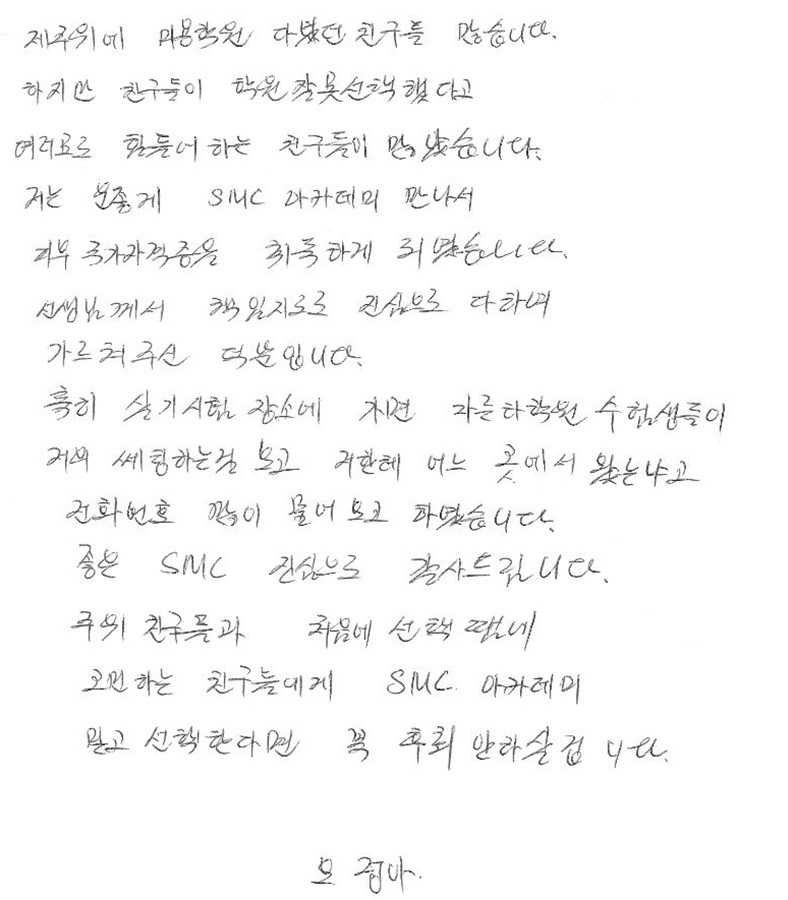 제주위에 미용학원 다녔던 친구들 많습니다.
하지만 친구들이 학원잘못선택했다고
여러모로 힘들어하는 친구들이 많았습니다.
저는 운좋게 SMC 아카데미 만나서
피부 국가자격증을 취득하게 되였습니다.
선생님께서 책임지으로 진심으로 다하여
가르쳐주신 덕분입니다.
특히 실기시험 장소에 가면 다른타학원 수험생들이
저의 쎄팅하는걸 보고 저한테 어느 곳에서 왔는냐고
전화번호 많이 물어보고 하였습니다.
좋은 SMC 진심으로 감사드립니다.
주위 친구들과 처음에 선택 땜에
고민하는 친구들에게 SMC 아카데미
믿고 선택한다면 꼭 후회 안하실겁니다.
오 정아.